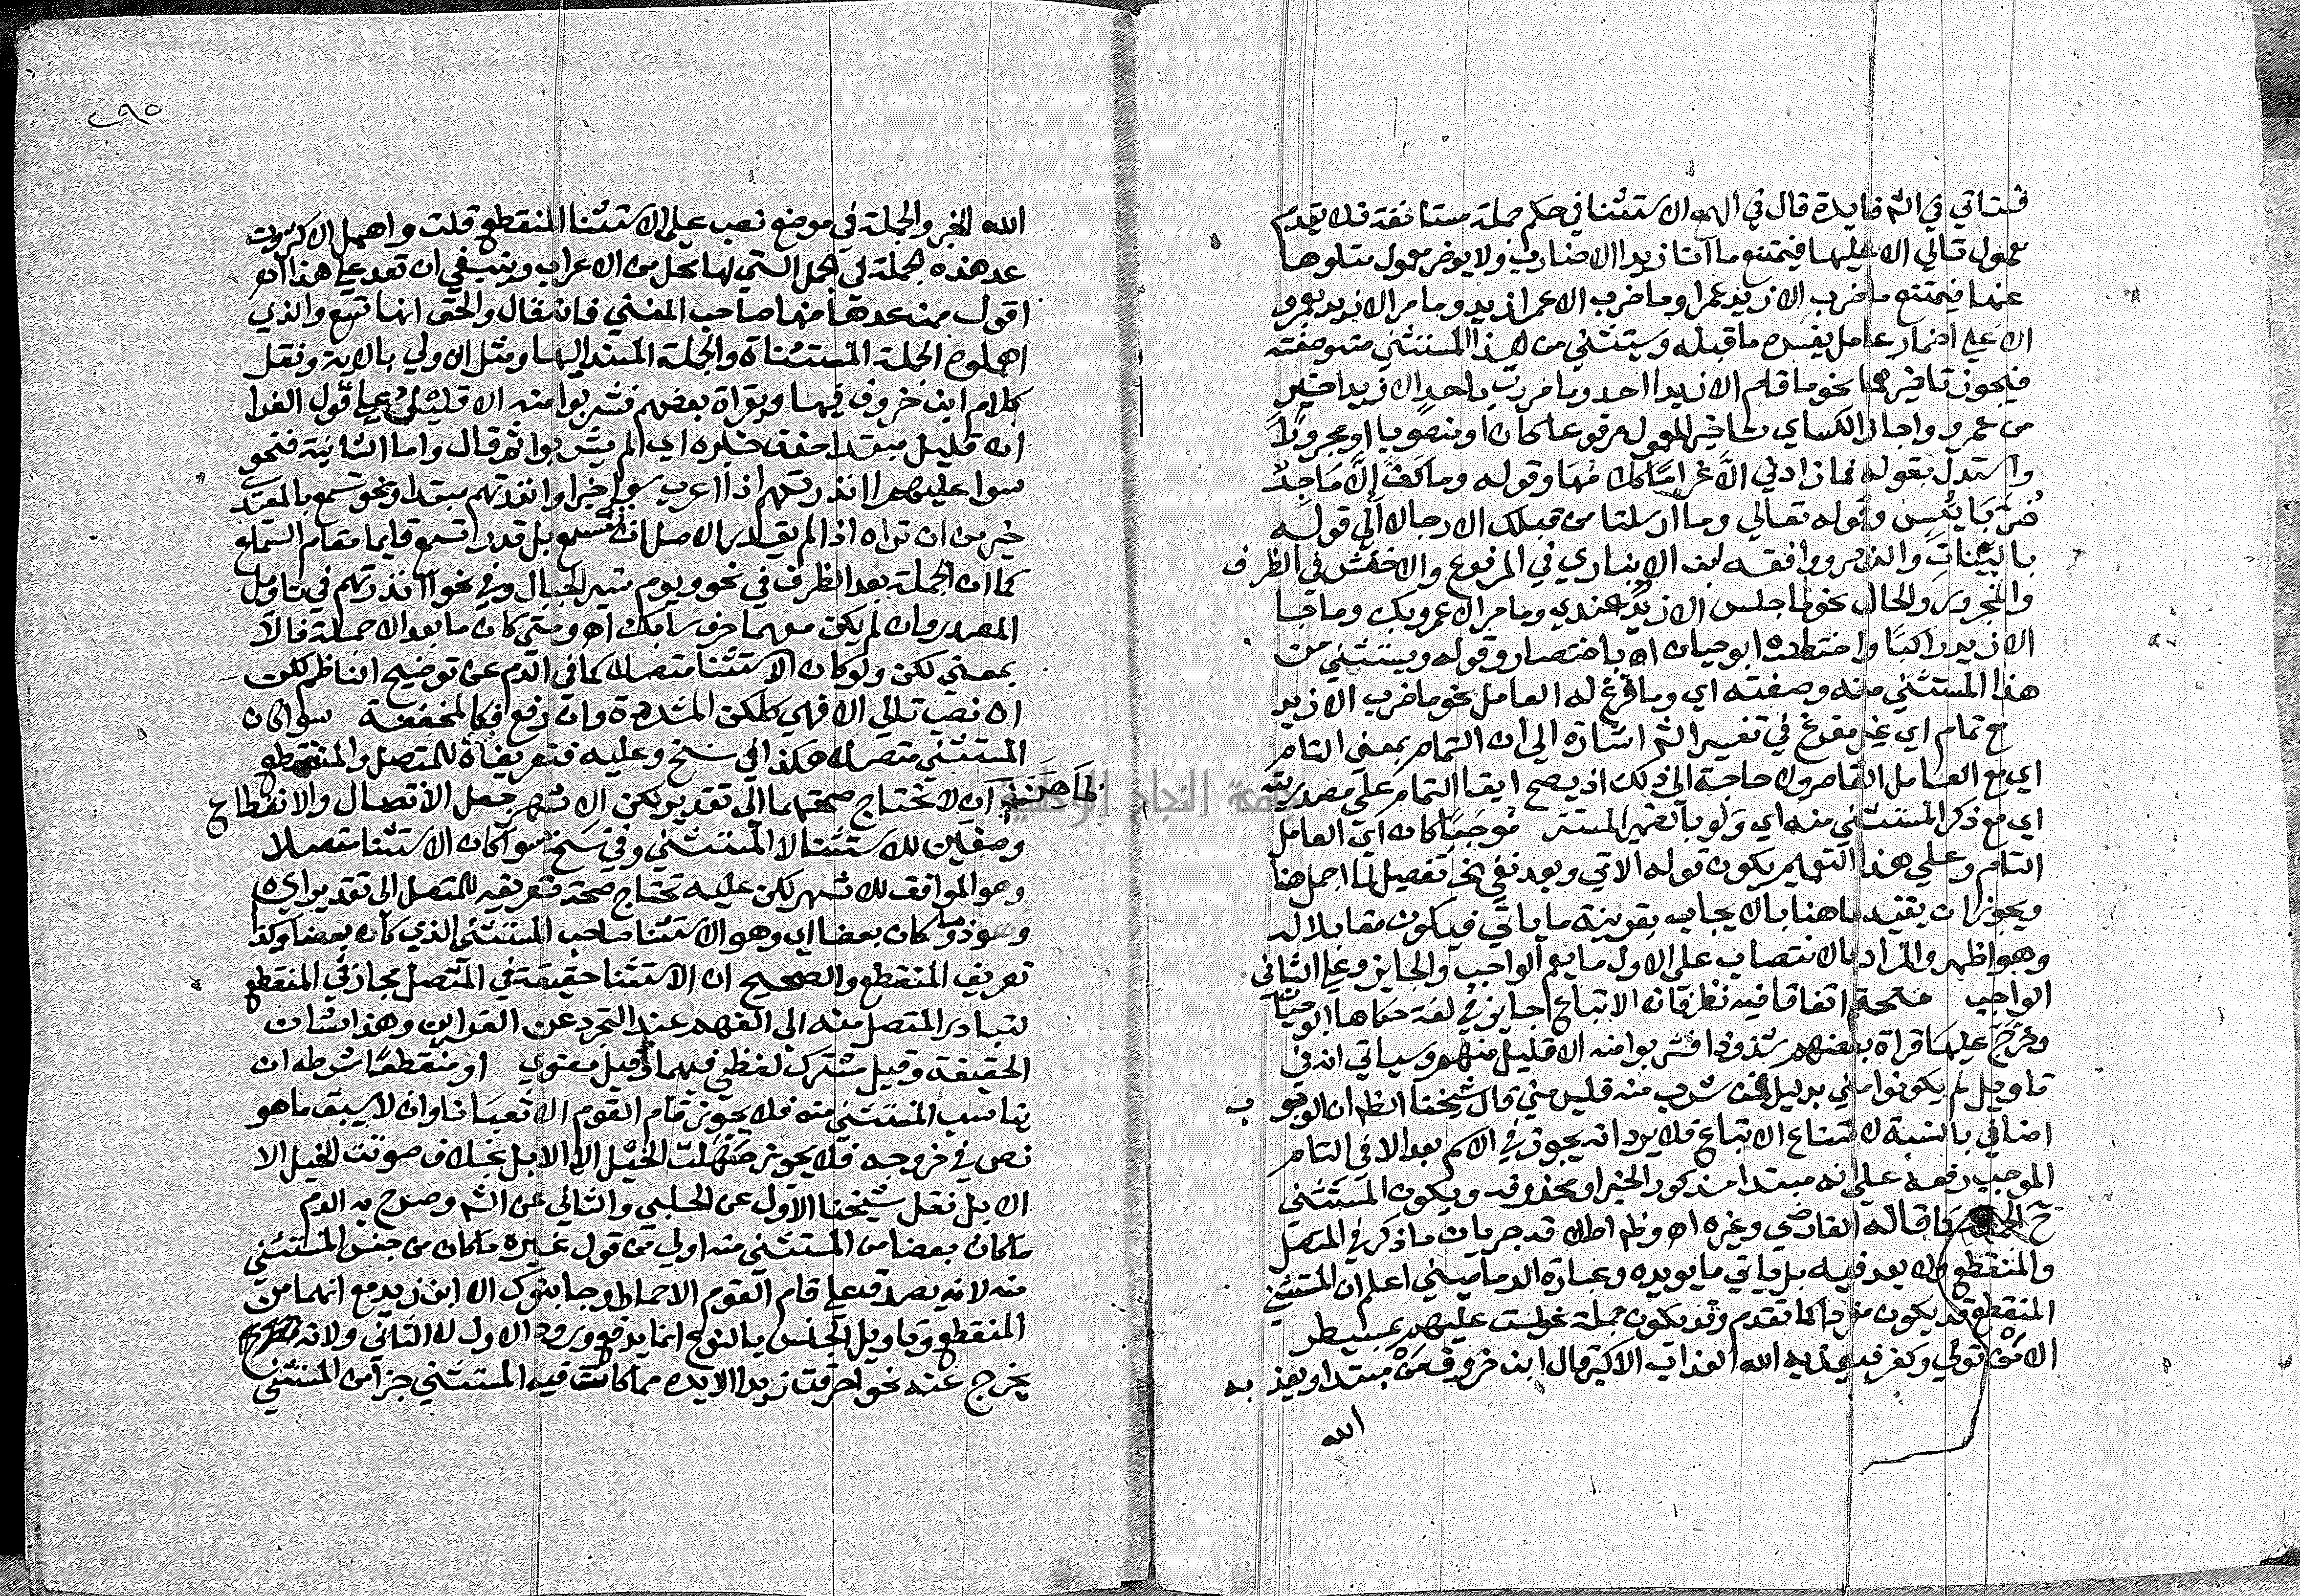 فستاتي في الشم فايدة قال في الهمع الاستثنا في حكم جملة مستانفة فلا يقدم
معمول تالي الا عليها فيمتنع ما انا زيدا الا ضارب ولا يوخر معمول متلوها
عنها فيمتنع ما ضرب الا زيد عمرا وما ضرب الا عمرا زيد وما مر الا زيد بعمرو
الا علي اضمار عامل يفسره ما قبله ويستثني من هذا المستثني منه وصفته
فيجوز تاخيرهما نحو ما قام الا زيدا احد وما مررت باحد الا زيدا خير
من عمرو واجاز الكساي تاخير المعمول مرفوعا كان او منصوبا او مجرورا
واستدل بقوله فما زادني الا غراما كلامها وقوله وما كف الا ماجد
ضر بايس وقوله تعالي وما ارسلنا من قبلك الا رجالا الي قوله
بالبينات والزبر ووافقه ابن الانباري في المرفوع والاخفش في الظرف
والمجرور والحال نحو ما جلس الا زيد عندي وما مر الا عمرو بك وما جا
الا زيد راكبا واختاره ابو حيان اه باختصار وقوله ويستثني من
هذا المستثني منه وصفته اي وما فرغ له العامل نحو ما ضرب الا زيد
مع تمام اي غير مفرغ في تفسير الشم اشارة الي ان التمام بمعني التام
اي مع العامل التام ولا حاجة الي ذلك اذ يصح ابقا التمام علي مصدريته
اي مع ذكر المستثني منه اي ولو بالضمير المستتر موجبا كان اي العامل
التام وعلي هذا التعميم يكون قوله الاتي وبعد نفي الخ تفصيل لما اجمل هنا
ويجوز ان يقيد ما هنا بالايجاب بقرينة ما ياتي فيكون مقابلا له
وهو اظهر والمراد بالانتصاب علي الاول ما يعم الواجب والجايز وعلي الثاني
الواجب متحه اتفاقا فيه نظر فان الاتباع جايز في لغة حكاها ابو حيان
وخرج عليها قراة بعضهم شذوذا فشربوا منه الا قليل منهم وسياتي انه في
تاويل لم يكونوا مني بدليل فمن شرب منه فليس مني قال شيخنا الظم ان الوجوب
اضافي بالنسبة لامتناع الاتباع فلا يرد انه يجوز في الاسم بعد الا في التام
الموجب رفعه علي انه مبتدا مذكور الخبر او محذوفه ويكون المستثني
ح الجملة كما قاله الفارضي وغيره اه وظم اطلاقه جريان ما ذكر في المتصل
والمنقطع ولا بعد فيه بل ياتي ما يويده وعبارة الدماميني اعلم ان المستثني
المنقطع قد يكون مفردا كما تقدم وقد يكون جملة نحو لست عليهم بمسيطر
الا من تولي وكفر فيعذبه الله العذاب الاكبر قال ابن خروف من مبتدا ويعذبه
الله
٢٩٥
الله الخبر والجملة في موضع نصب علي الاستثنا المنقطع قلت واهمل الاكثرون
عد هذه الجملة في الجمل التي لها محل من الاعراب وينبغي ان تعد علي هذا اه
اقول ممن عدها منها صاحب المغني فانه قال والحق انها تسع والذي
اهملوه الجملة المستثناة والجملة المسند اليها ومثل الاولي بالاية ونقل
كلام ابن خروف فيها وبقراة بعضهم فشربوا منه الا قليل علي قول الفرا
ان قليل مبتدا حذف خبره اي لم يشربوا ثم قال واما الثانية فنحو
سوا عليهم اانذرتهم اذا اعرب سوا خبرا وانذرتهم مبتدا ونحو تسمع بالمعيدي
خير من ان تراه اذا لم يقدر الاصل ان تسمع بل قدر تسمع قايما مقام السماع
كما ان الجملة بعد الظرف في نحو ويوم نسير الجبال وفي نحو اانذرتهم في تاويل
المصدر وان لم يكن معهما حرف سابك اه ومتي كان ما بعد الا جملة فالا
بمعني لكن ولو كان الاستثنا متصلا كما في الدم عن توضيح الناظم لكن
ان نصب تالي الا فهي كلكن المشددة وان رفع فكالمخففة سوا كان
المستثني متصلا هكذا في نسخ وعليه فتعريفاه للمتصل والمنقطع
ظاهران لا تحتاج صحتهما الي تقدير لكن الاشهر جعل الاتصال والانقطاع
وصفين للاستثنا لا المستثني وفي نسخ سوا كان الاستثنا متصلا
وهو الموافق للاشهر لكن عليه تحتاج صحة تعريفه للمتصل الي تقدير اي
وهو ذو ما كان بعضا اي وهو الاستثنا صاحب المستثني الذي كان بعضا وكذا
تعريف المنقطع والصحيح ان الاستثنا حقيقة في المتصل مجاز في المنقطع
لتبادر المتصل منه الي الفهم عند التجرد عن القراين وهذا شان
الحقيقة وقيل مشترك لفظي فيهما وقيل معنوي او منقطعا شرطه ان
يناسب المستثني منه فلا يجوز قام القوم الا ثعبانا وان لا يسبق ما هو
نص في خروجه فلا يجوز صهلت الخيل الا الابل بخلاف صوتت الخيل الا
الابل نقل شيخنا الاول عن الحلبي والثاني عن الشم وصرح به الدم
ما كان بعضا من المستثني منه اولي من قول غيره ما كان من جنس المستثني
منه لانه يصدق علي قام القوم الا حمارا وجا بنوك الا ابن زيد مع انهما من
المنقطع وتاويل الجنس بالنوع انما يدفع ورود الاول لا الثاني ولانه
يخرج عنه نحو احرقت زيدا الا يده مما كان فيه المستثني جزا من المستثني